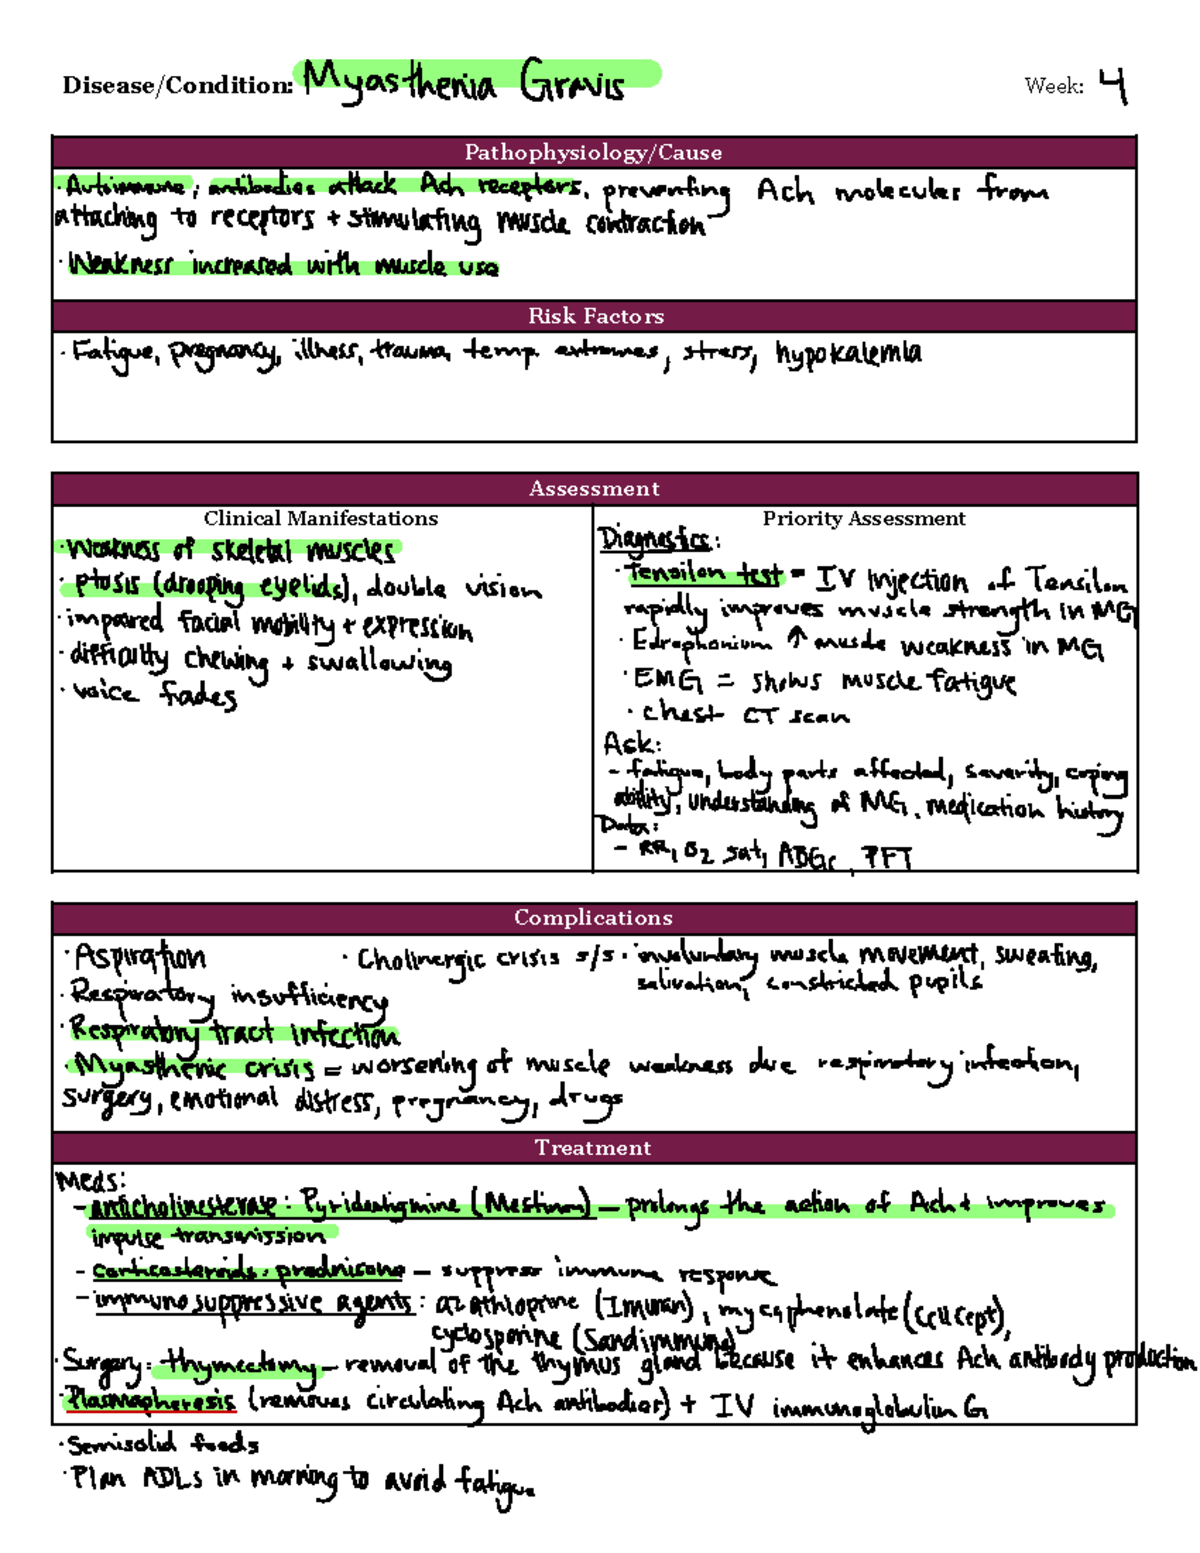 Disease/Condition: Myasthenia Gravis Week: 4
Pathophysiology/Cause
· Autoimmune; antibodies attack Ach receptors, preventing Ach molecules from
attaching to receptors + stimulating muscle contraction
· Weakness increased with muscle use
Risk Factors
· Fatigue, pregnancy, illness, trauma, temp. extremes, stress, hypokalemia
Assessment
Clinical Manifestations
· Weakness of skeletal muscles
· ptosis (drooping eyelids), double vision
· impaired facial mobility + expression
· difficulty chewing + swallowing
· voice fades
Priority Assessment
Diagnostics:
· Tensilon test = IV injection of Tensilon
rapidly improves muscle strength in MG
· Edrophonium ↑ muscle weakness in MG
· EMG = shows muscle fatigue
· chest CT scan
Ask:
- fatigue, body parts affected, severity, coping
ability, understanding of MG, medication history
Data:
- RR, O2 sat, ABGs, PFT
Complications
· Aspiration
· Respiratory insufficiency
· Respiratory tract infection
· Cholinergic crisis s/s · involuntary muscle movement, sweating,
salivation, constricted pupils
· Myasthenic crisis = worsening of muscle weakness due respiratory infection,
surgery, emotional distress, pregnancy, drugs
Treatment
Meds:
- anticholinesterase: Pyridostigmine (Mestinon) — prolongs the action of Ach + improves
impulse transmission
- corticosteroids: prednisone — suppress immune response
- immunosuppressive agents: azathioprine (Imuran), mycophenolate (CellCept),
cyclosporine (Sandimmune)
· Surgery: thymectomy — removal of the thymus gland because it enhances Ach antibody production
· Plasmapheresis (removes circulating Ach antibodies) + IV immunoglobulin G
· Semisolid foods
· Plan ADLs in morning to avoid fatigue